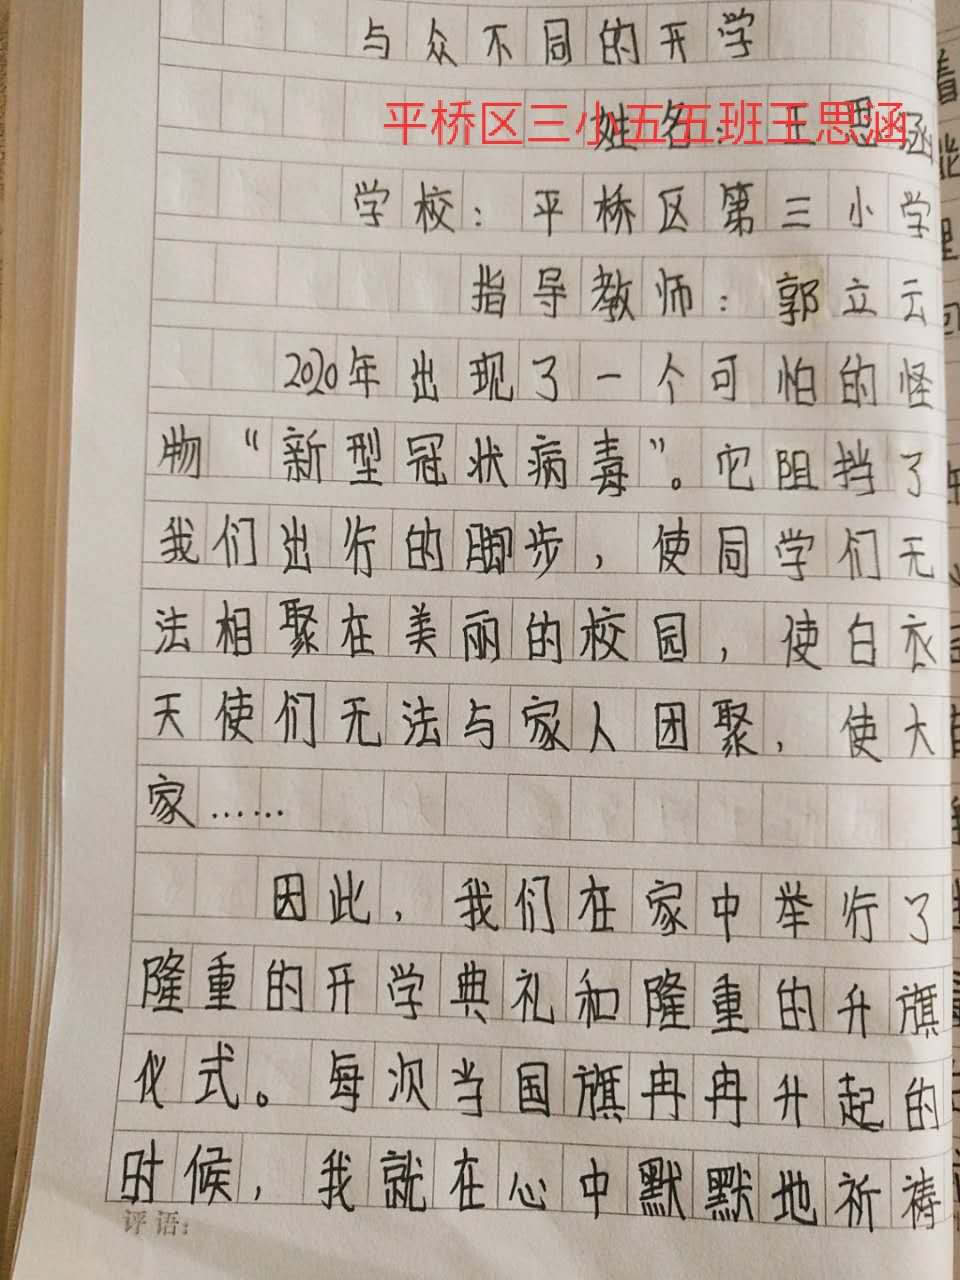 与众不同的开学
平桥区三小五五班王思涵
姓名：王思涵
学校：平桥区第三小学
指导教师：郭立云
2020年出现了一个可怕的怪
物“新型冠状病毒”。它阻挡了
我们出行的脚步，使同学们无
法相聚在美丽的校园，使白衣
天使们无法与家人团聚，使大
家……
因此，我们在家中举行了
隆重的开学典礼和隆重的升旗
仪式。每次当国旗冉冉升起的
时候，我就在心中默默地祈祷
评语：